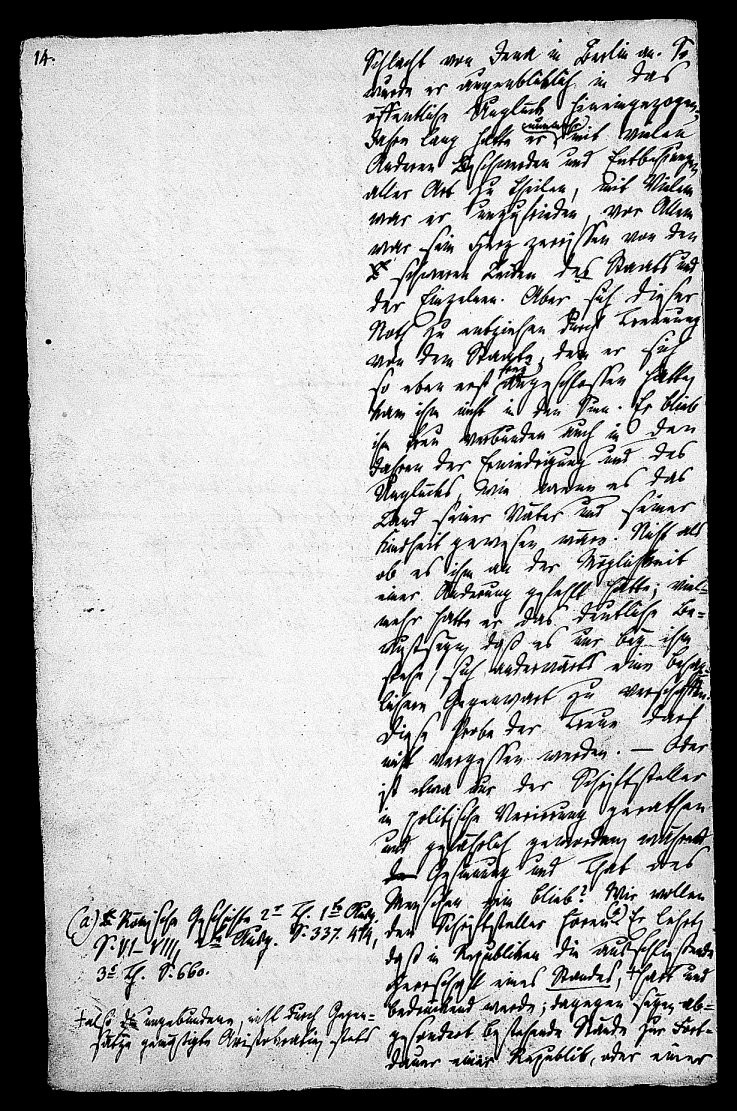 14.
Schlacht von Jena in Berlin an. So
wurde er augenblicklich in das
öffentliche Unglück hineingezogen,
Jahre lang hatte er nunmehr mit vielen
Anderen Beschwerden und Entbehrungen
aller Art zu theilen, mit Vielen
war er unzufrieden, vor Allem
war sein Herz zerrissen von den
schweren Leiden des Staats und
der Einzelnen. Aber sich dieser
Noth zu entziehen durch Trennung
von dem Staate, dem er sich
so eben erst angeschlossen hatte,
kam ihm nicht in den Sinn. Er blieb
ihm treu verbunden auch in den
Jahren der Erniedrigung und des
Unglücks, wie wenn es das
Land seiner Väter und seiner
Kindheit gewesen wäre. Nicht als
ob es ihm an der Möglichkeit
einer Änderung gefehlt hätte; viel-
mehr hatte er das deutliche Be-
wustseyn, daß es nur bey ihm
stehe, sich anderwärts eine behag-
lichere Gegenwart zu verschaffen.
Diese Probe der Treue darf
nicht vergessen werden. — Oder
ist etwa nur der Schriftsteller
in politische Verirrung gerathen
und gefährlich geworden, während
Gesinnung und That des
Menschen rein blieb? Wir wollen
den Schriftsteller hören. Er lehrt,
daß in Republiken die ausschließende
Herrschaft eines Standes, hart und
bedrückend werde; dagegen seyen ab-
gesondert bestehende Stände zur Fort-
dauer einer Republik, oder einer
(a) Römische Geschichte 2r Th. 1te Ausg.
S. VI–VIII, 2te Ausg. S. 337. 414,
3r Th. S. 660.
+ also ungebundene, nicht durch Gegen-
sätze gemäßigte Aristokratien, stets